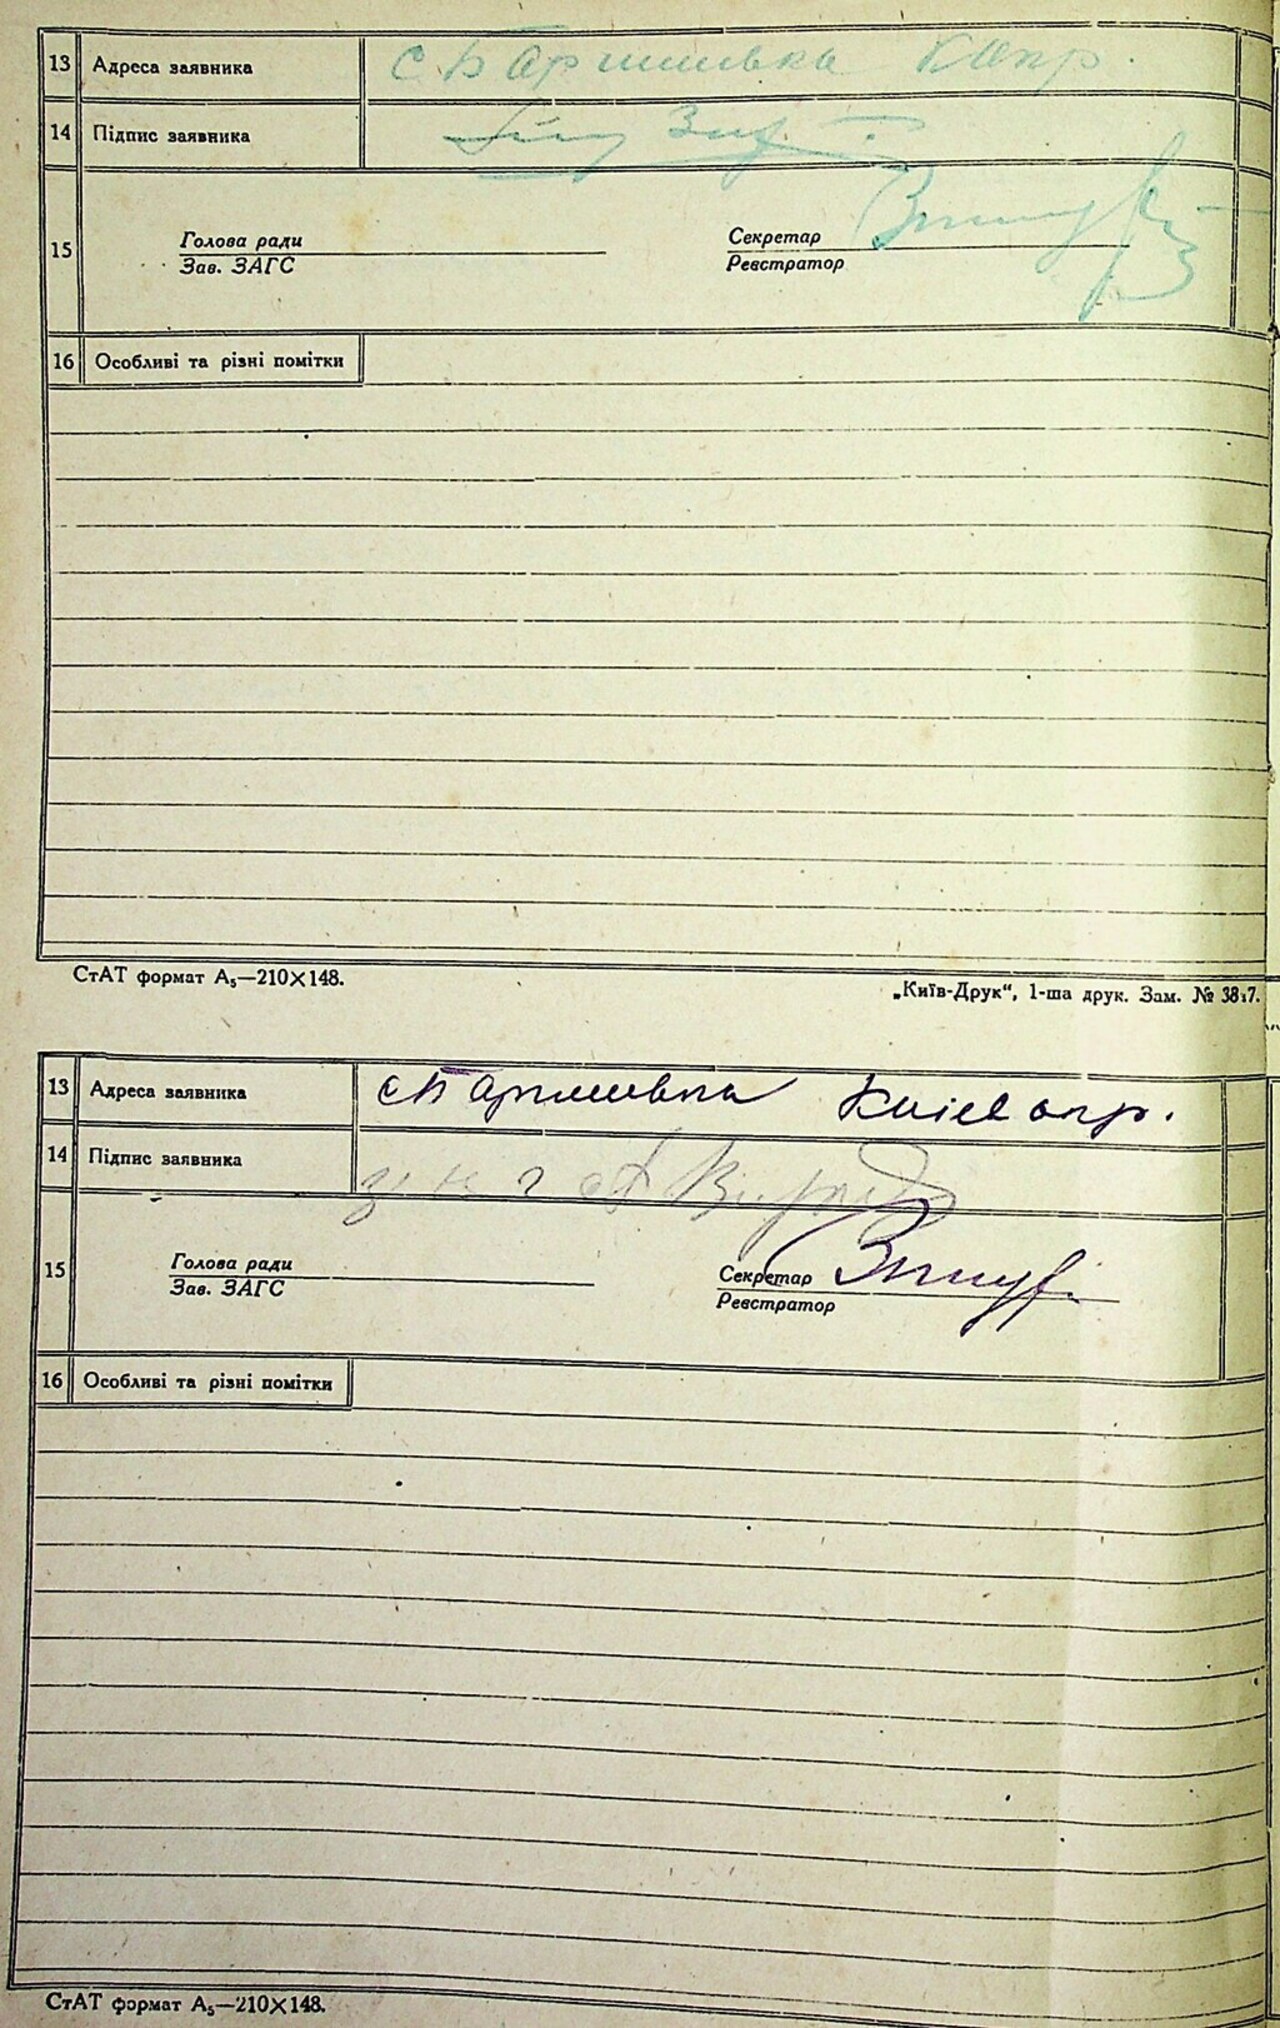 13 Адреса заявника с. Баришивка К окр.
14 Підпис заявника
15 Голова ради Секретар
Зав. ЗАГС Реєстратор
16 Особливі та різні помітки
СтАТ формат А₅—210×148.
„Київ-Друк“, 1-ша друк. Зам. №
13 Адреса заявника с Баришивка Київ окр.
14 Підпис заявника
15 Голова ради Секретар
Зав. ЗАГС Реєстратор
16 Особливі та різні помітки
СтАТ формат А₅—210×148.